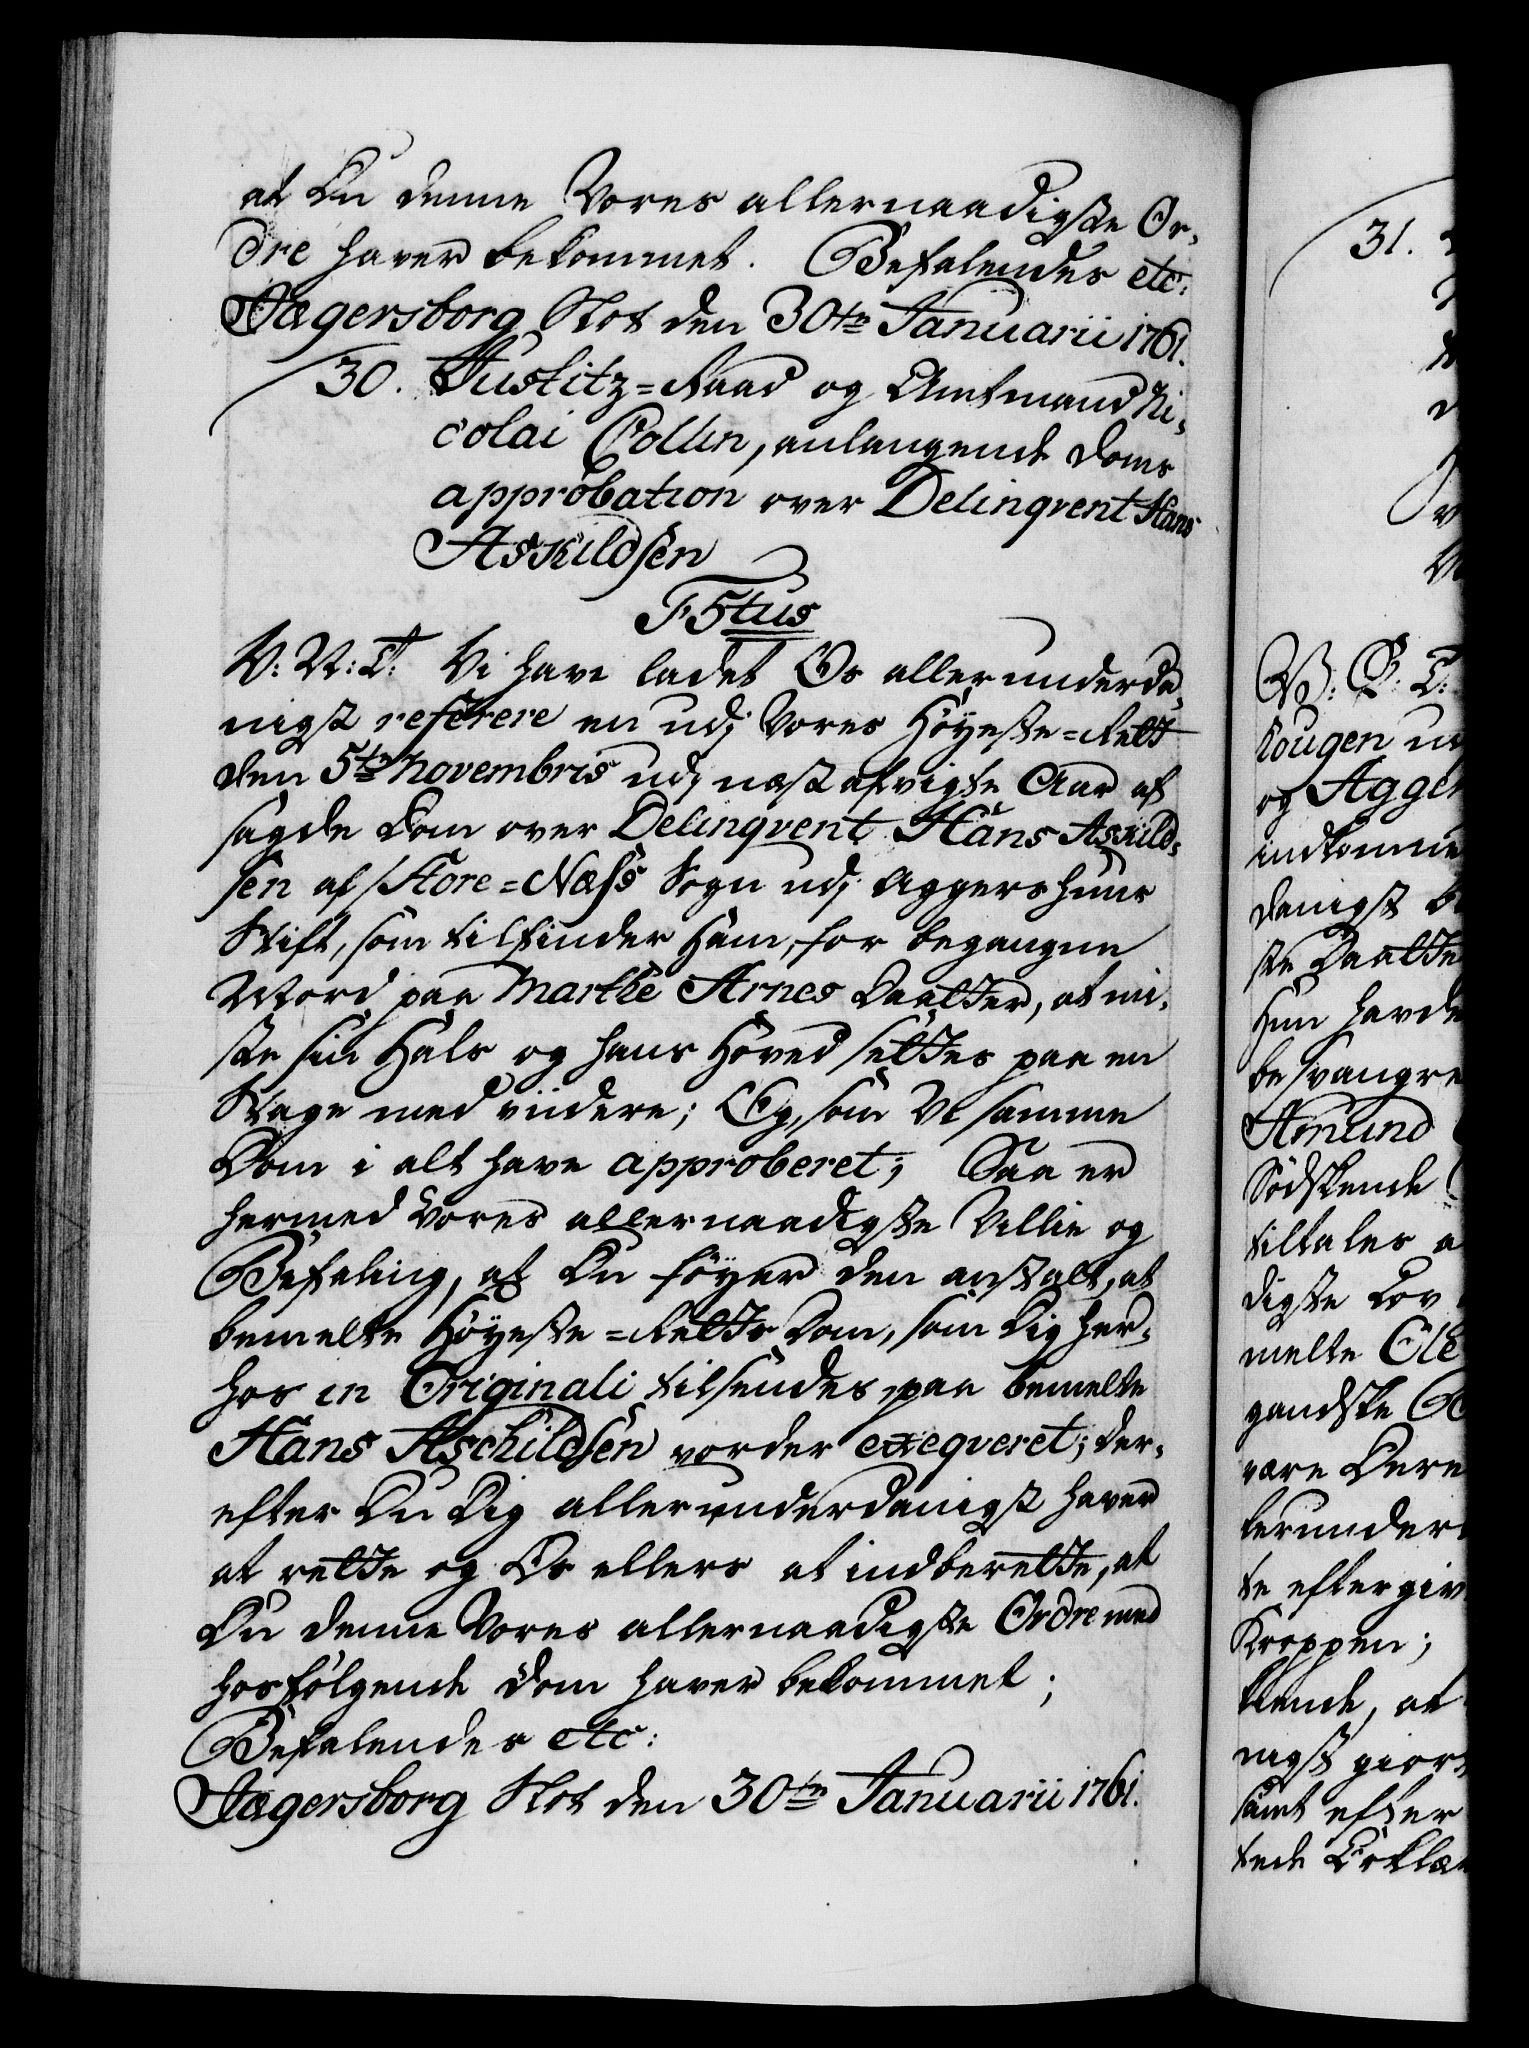 at Du denne Vores allernaadigste Or-
dre haver bekommet. Befalendes etc:
Jægersborg Slot den 30te Januarii 1761.
30. Justitz=Raad og Amtmand Ni-
colai Collin, anlangende Doms
approbation over Delinqvent Hans
Askildsen
F5tus
V: V: T: Vi have ladet Os allerunderda-
nigst referere en udj Vores Höyeste=Rett
den 5te Novembris udj næst afvigte Aar af
sagde Dom over Delinqvent Hans Askild-
sen af Store=Næss Sogn udj Aggershuus
Stift, som tilfinder Ham, for begangne
Mord paa Marthe Arnes Daatter, at mi-
ste sin Hals og hans Hoved settes paa en
Stage med viidere; Og, som Vi samme
Dom i alt have approberet; Saa er
hermed Vores allernaadigste Villie og
Befaling, at Du föyer den anstalt, at
bemelte Höyeste=Retts Dom, som Dig her-
hos in Originali tilsendes, paa bemelte
Hans Aschildsen vorder exeqveret; der-
efter Du Dig allerunderdanigst haver
at rette og Os ellers at indberette, at
Du denne Vores allernaadigste Ordre med
hosfölgende Dom haver bekommet;
Befalendes etc:
Jægersborg Slot den 30te Januarii 1761.
31.
V: G: T:
Kougen
og Agger
indkomme
danigst
ste Daatter
Hun havde
besvangre
Amund
Södskende
tiltales
digste Lov
melte Ole
gandske
være Dere
lerunder
te eftergiv
Kroppen;
kiende, at
nigst giort
samt efter
tede Erklæ